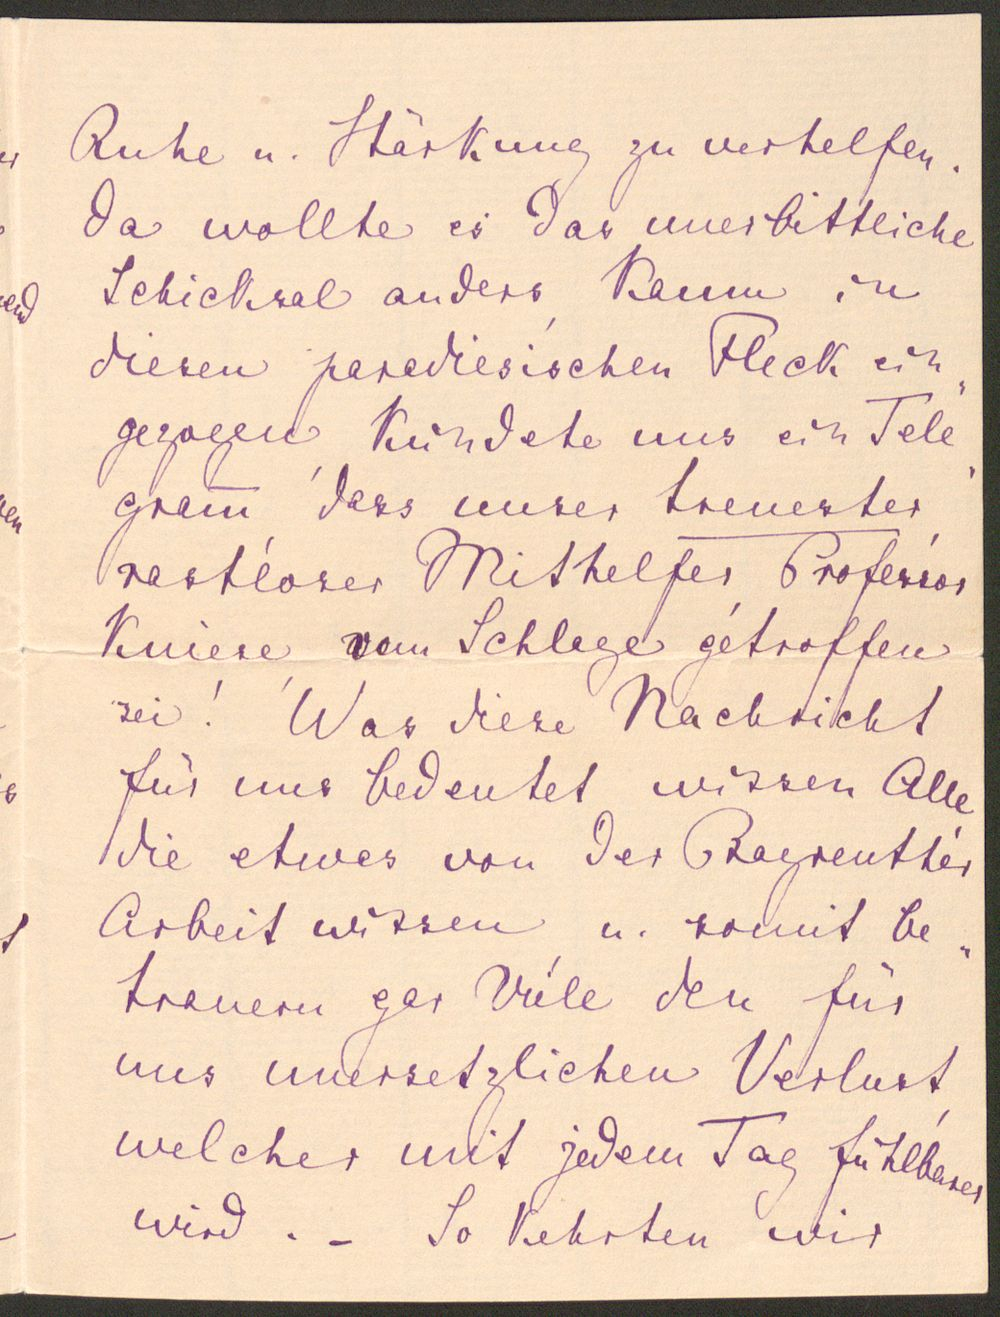 Ruhe u. Stärkung zu verhelfen.
Da wollte es das unerbittliche
Schicksal anders, kaum in
diesen paradiesischen Fleck ein„
gezogen, kündete uns ein Tele„
gram̅ dass unser treuester,
rastloser Mithelfer, Professor
Kniese, vom Schlage getroffen
sei! Was diese Nachricht
für uns bedeutet, wissen Alle
die etwas von der Bayreuther
Arbeit wissen u. somit be„
trauern gar Viele den für
uns unersetzlichen Verlust,
welcher mit jedem Tag fühlbarer
wird. – So kehrten wir